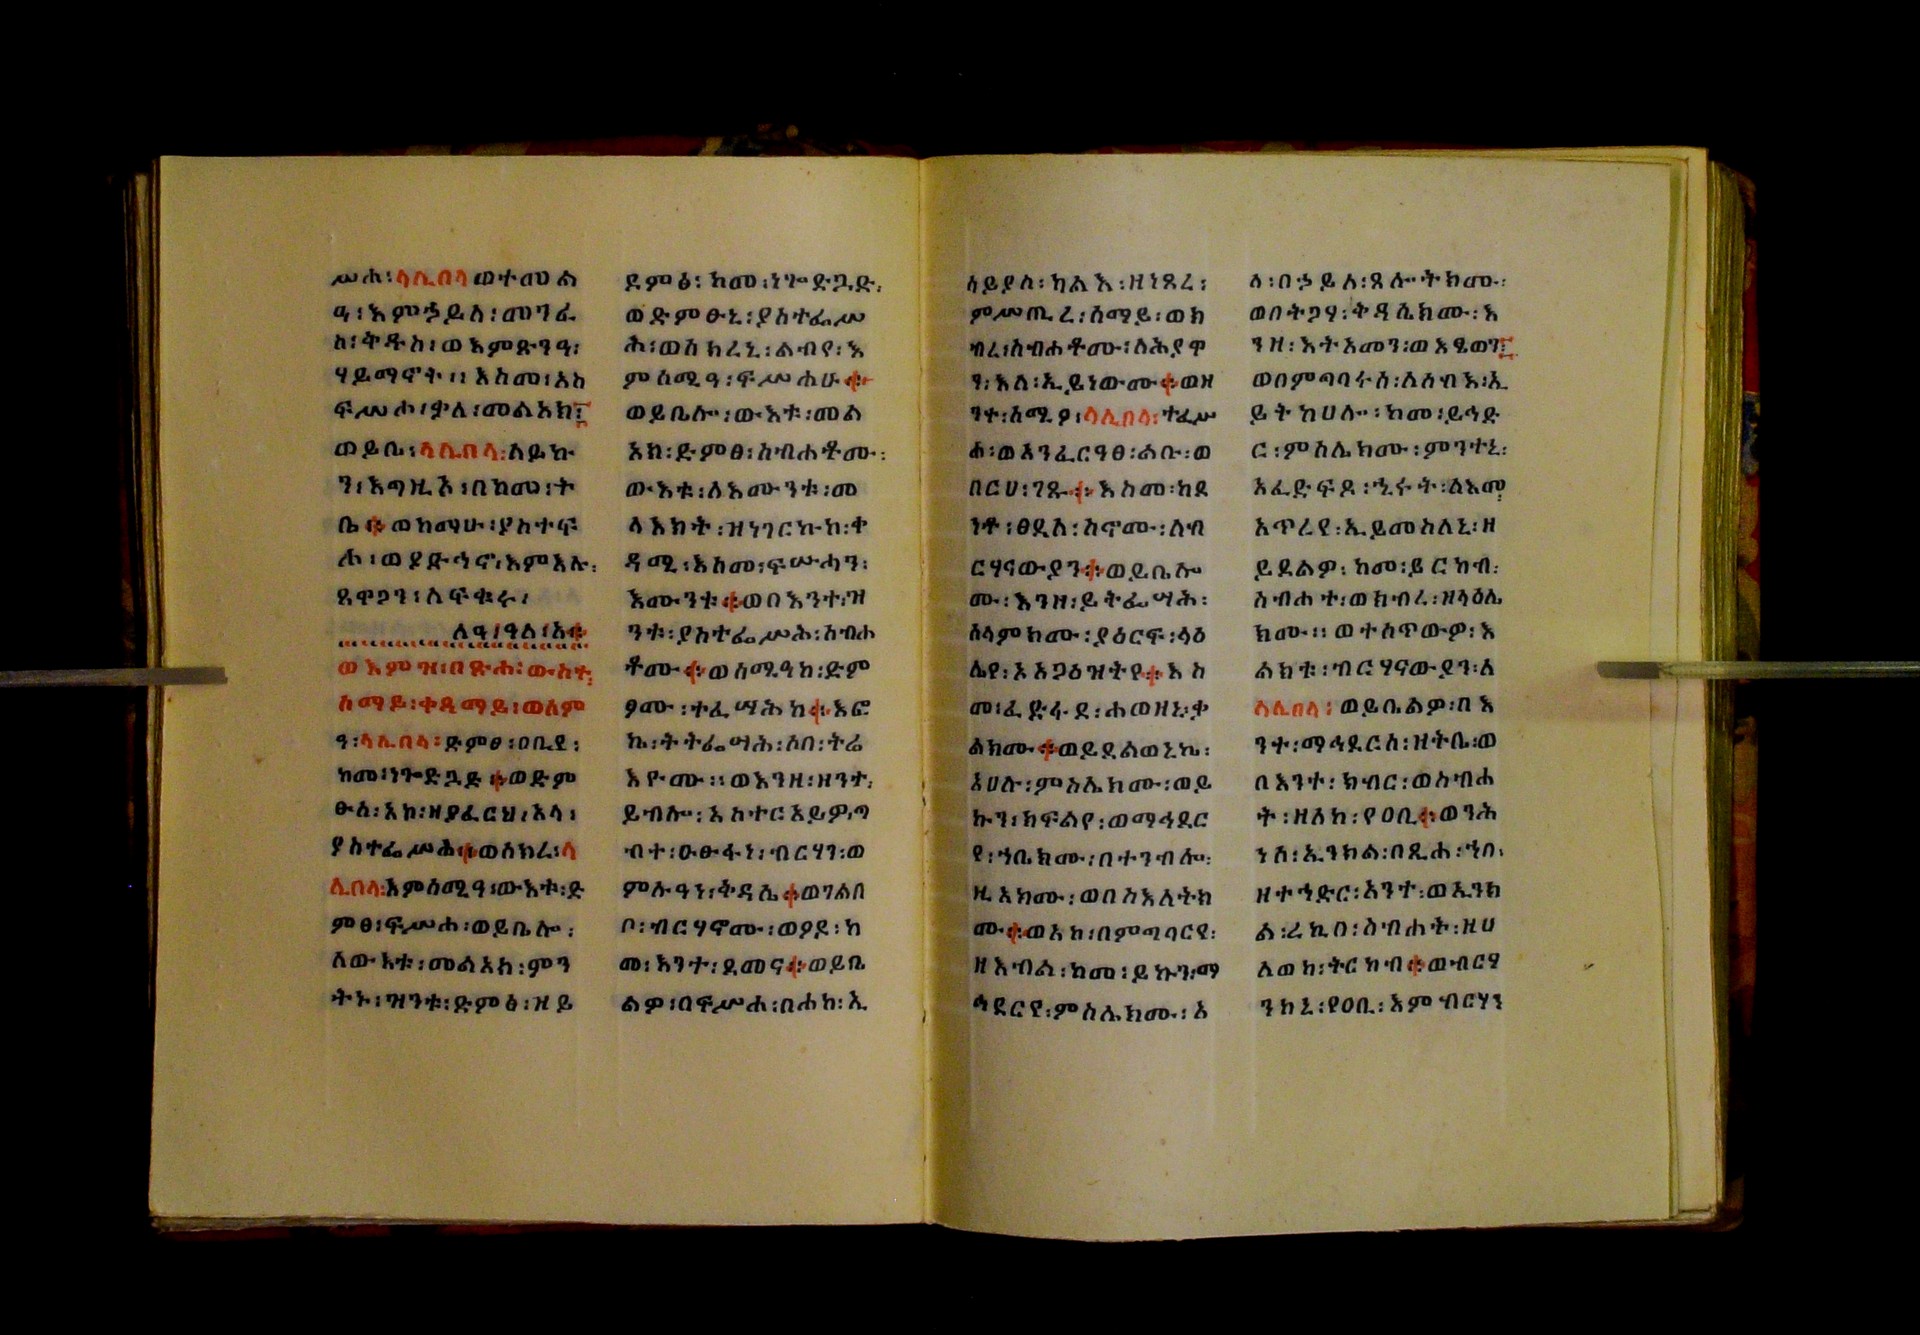 ሥሐ፡ላሊበላወተመል
ዓ፡እምኃይለ፡መንፈ
ስ፡ቅዱስ፡ወእምጽንዓ፡
ሃይማኖት፡፡እስመ፡አከ
ፍሥሖ፡ቃለ፡መልአክ፡
ወይቤ፡ላሊበላ፡ለይኩ
ን፡እግዚኦ፡በከመ፡ት
ቤ፡ወከማሁ፡ያስተፍ
ሖ፡ወያድኅኖ፡እምእሉ፡
ጸዋጋን፡ለፍቁሩ፡
ለዓ፡ዓለ፡አ
ወእምዝ፡በጽሐ፡ውስተ፡
ሰማይ፡ቀዲማይ፡ወለም
ዓ፡ላሊበላ፡ድምፀ፡ዐቢየ፡
ከመ፡ነጐድጓድ፡ወድም
ፁሰ፡አኮ፡ዘያፈርህ፡አላ፡
ያስተፌሥሕ፡ወሰክረ፡ላ
ሊበላ፡እምሰሚዓ፡ውእቱ፡ድ
ምፀ፡ፍሥሐ፡ወይቤሎ፡
ለውእቱ፡መልአክ፡ምን
ትኑ፡ዝንቱ፡ድምፅ፡ዘይ
ደምፅ፡ከመ፡ነጐድጓድ፡
ወድምፁኒ፡ያስተፌሥ
ሕ፡ወሰከረኒ፡ልብየ፡እ
ምሰሚዓ፡ፍሥሐሁ፡
ወይቤሎ፡ውእቱ፡መል
አክ፡ድምፀ፡ስብሐቶሙ፡
ውእቱ፡ለእሙንቱ፡መ
ላእክት፡ዝነገርኩከ፡ቀ
ዳሚ፡እስመ፡ፍሡሓን፡
እሙንቱ፡ወበእንተ፡ዝ
ንቱ፡ያስተፌሥሕ፡ስብሐ
ቶሙ፡ወሰሚዓከ፡ድም
ፆሙ፡ተፈሣሕከ፡እፎ
ኬ፡ትትፌሣሕ፡ሶበ፡ትሬ
እዮሙ፡፡ወእንዘ፡ዘንተ፡
ይብሎ፡አስተርአይዎ፡ጣ
ብተ፡ዑፁፋነ፡ብርሃን፡ወ
ምሉዓነ፡ቅዳሴ፡ወገልበ
ቦ፡ብርሃኖሙ፡ወያደ፡ከ
መ፡እንተ፡ደመና፡ወይቤ
ልዎ፡በፍሥሐ፡በሐከ፡ኢ
ላይያስ፡ካልእ፡ዘነጸረ፡
ምሥጢረ፡ሰማይ፡ወክ
ብረ፡ስብሐቶሙ፡ለሕያዋ
ን፡እለ፡ኢይነውሙ፡ወዘ
ንተ፡ሰሚዖ፡ላሊበላ፡ተፈሥ
ሐ፡ወአንፈርዓፀ፡ልቡ፡ወ
በርሀ፡ገጹ፡እስመ፡ከደ
ነቶ፡ፀዲለ፡ስኖሙ፡ለብ
ርሃናውያን፡ወይቤሎ
ሙ፡እንዘ፡ይትፌሣሕ፡
ሰላምክሙ፡ያዕርፍ፡ላዕ
ሌየ፡ኦአጋዕዝትየ፡እስ
መ፡ፈድፋደ፡ሐወዘኒ፡ቃ
ልክሙ፡ወይደልወኒኬ፡
አሀሉ፡ምስሌክሙ፡ወይ
ኩን፡ክፍልየ፡ወማኅደር
የ፡ኀቤክሙ፡በተንብሎ፡
ዚአክሙ፡ወበስእለትክ
ሙ፡ወአኮ፡በምግባርየ፡
ዘእብል፡ከመ፡ይኩን፡ማ
ኅደርየ፡ምስሌክሙ፡አ
ላ፡በኃይለ፡ጸሎትክሙ፡
ወበትጋሃ፡ቅዳሴክሙ፡እ
ንዘ፡እትአመን፡ወእዌውን፡
ወበምግባሩሰ፡ለሰብእ፡ኢ
ይትከሀሎ፡ከመ፡ይኅድ
ር፡ምስሌክሙ፡ምንተኒ፡
አፈድፍዶ፡ኂሩት፡ለእመ፡
አጥረየ፡ኢይመስለኒ፡ዘ
ይደልዎ፡ከመ፡ይርከብ፡
ስብሐተ፡ወክብረ፡ዘላዕሌ
ክሙ፡፡ወተሰጥውዎ፡እ
ልክቱ፡ብርሃናውያን፡ለ
ላሊበላ፡ወይቤልዎ፡በእ
ንተ፡ማኅደርሰ፡ዘትቤ፡ወ
በእንተ፡ክብር፡ወስብሐ
ት፡ዘለከ፡የዐቢ፡ወንሕ
ነሰ፡ኢንክል፡በጺሐ፡ኀበ፡
ዘተኅድር፡አንተ፡ወኢንክ
ል፡ረኪበ፡ስብሐት፡ዘሀ
ለወከ፡ትርክብ፡ወብርሃ
ንከኒ፡የዐቢ፡እምብርሃነ